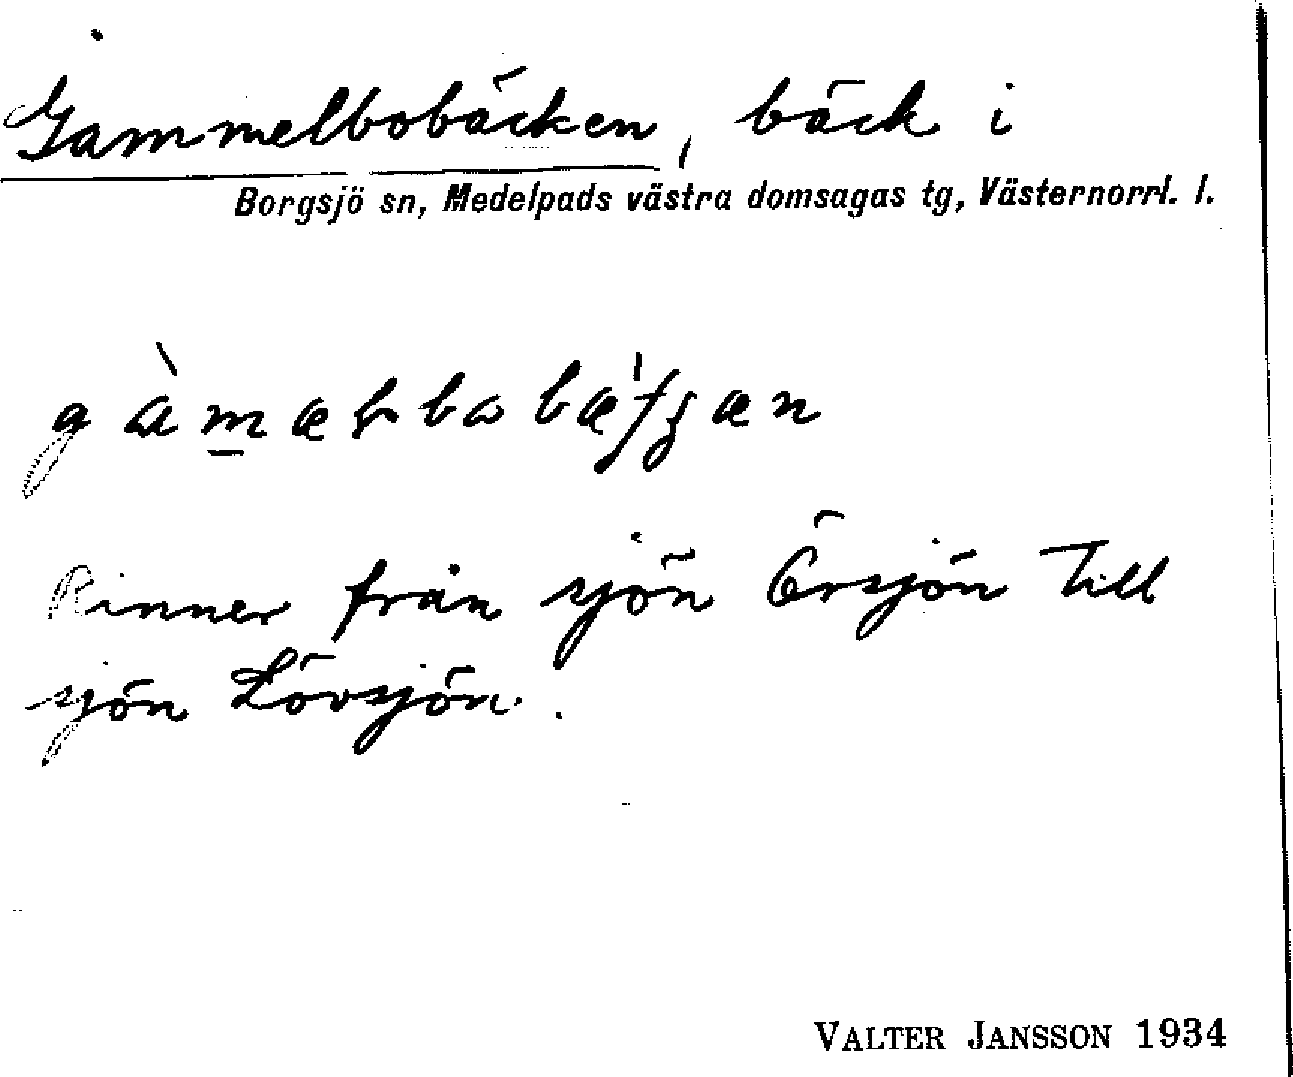 Gammelbobäcken, bäck i
Borgsjö sn, Medelpads västra domsagas tg, Västernorrl. l.
Rinner från sjön Örsjön till
sjön Lövsjön.
VALTER JANSSON 1934